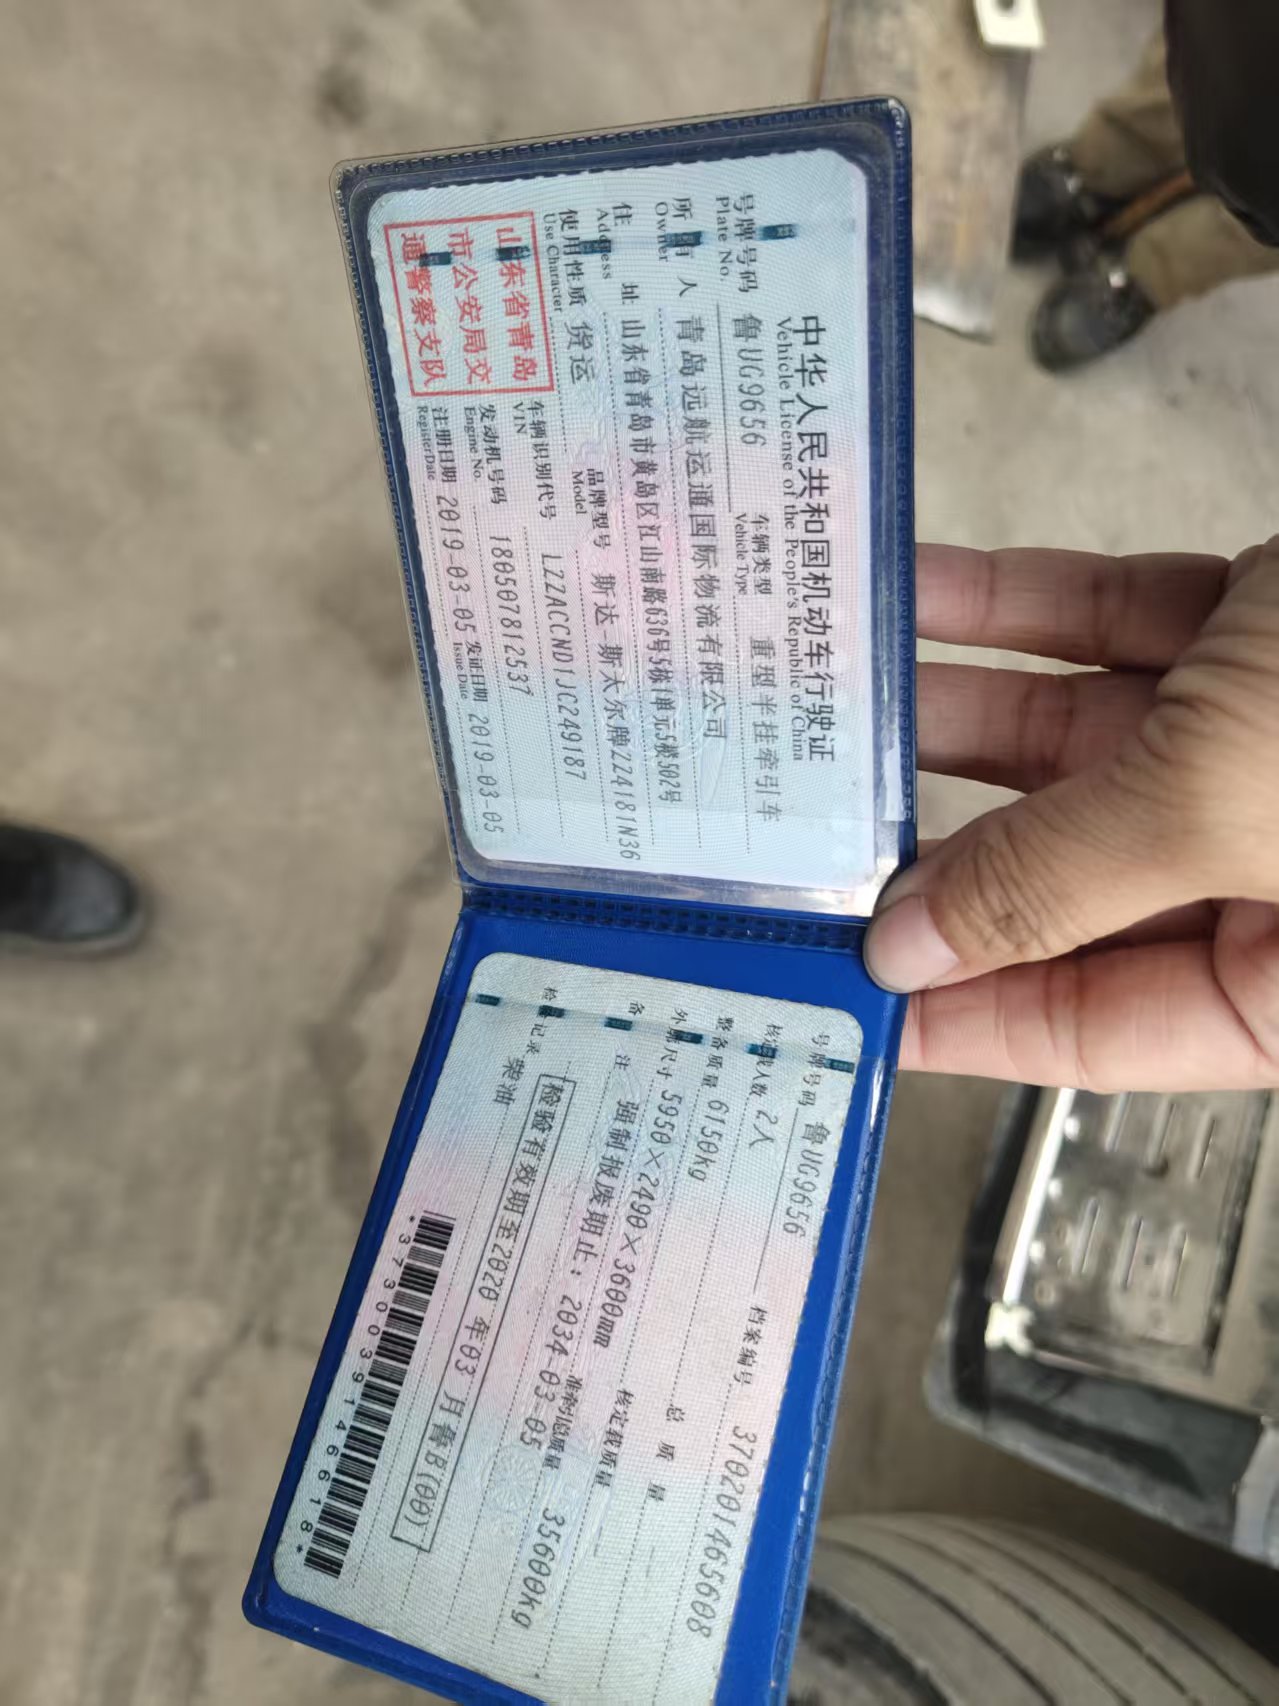 中华人民共和国机动车行驶证
Vehicle License of the People's Republic of China
号牌号码 鲁UG9656 车辆类型 重型半挂牵引车
Plate No. Vehicle Type
所有人 青岛远航运通国际物流有限公司
Owner
住址 山东省青岛市黄岛区江山南路636号5栋1单元5楼502号
Address
使用性质 货运 品牌型号 斯达-斯太尔牌ZZ4181N36
Use Character Model
山东省青岛
市公安局交
通警察支队
车辆识别代号 LZZACCND1JC249187
VIN
发动机号码 180507812537
Engine No.
注册日期 2019-03-05 发证日期 2019-03-05
Register Date Issue Date
号牌号码 鲁UG9656 档案编号 370201465608
核定载人数 2人 总质量 —
整备质量 6150kg 核定载质量 —
外廓尺寸 5950×2490×3600mm 准牵引总质量 35600kg
备注 强制报废期止：2034-03-05
检验记录
检验有效期至2020年03月鲁B(00)
柴油
*3730039146618*